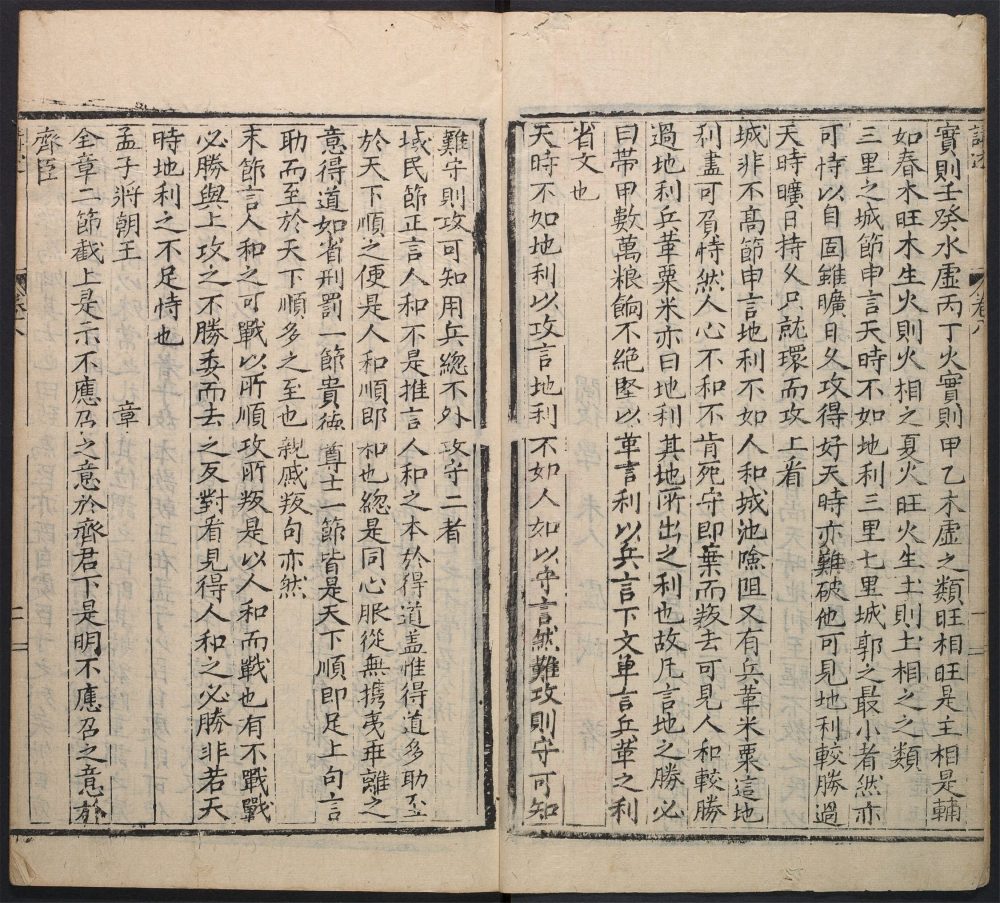 實則壬癸水虛丙丁火實則甲乙木虛之類旺相旺是主相是輔
如春水旺木生火則火相之夏火旺火生土則土相之之類
三里之城節申言天時不如地利三里七里城郭之最小者然亦
可恃以自固雖曠日久攻得好天時亦難破他可見地利較勝過
天時曠日持久只就環而攻上看
城非不髙節申言地利不如人和城池險阻又有兵革米粟這地
利盡可負恃然人心不和不肯死守即棄而叛去可見人和較勝
過地利兵革粟米亦曰地利其地所出之利也故凡言地之勝必
曰帶甲數萬粮餉不絕堅以革言利以兵言下文单言兵革之利
省文也
天時不如地利以攻言地利不如人如以守言然難攻則守可知
難守則攻可知用兵總不外攻守二者
域民節正言人和不是推言人和之本於得道盖惟得道多助至
於天下順之便是人和順即和也總是同心服從無携夷乖離之
意得道如省刑罰一節貴德尊士一節皆是天下順即足上句言
助而至於天下順多之至也親戚叛句亦然
末節言人和之可戰以所順攻所叛是以人和而戰也有不戰戰
必勝與上攻之不勝委而去之反對看見得人和之必勝非若天
時地利之不足恃也
孟子將朝王 章
全章二節截上是示不應召之意於齊君下是明不應召之意於
齊臣
卷八
二